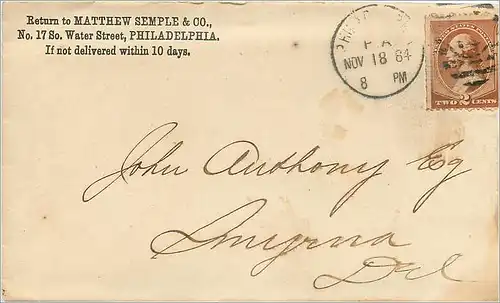 Return to MATTHEW SEMPLE & CO.,
No. 17 So. Water Street, PHILADELPHIA.
If not delivered within 10 days.
PA
NOV 18 84
8 PM
TWO 2 CENTS
John Anthony Esq
Smyrna
Del